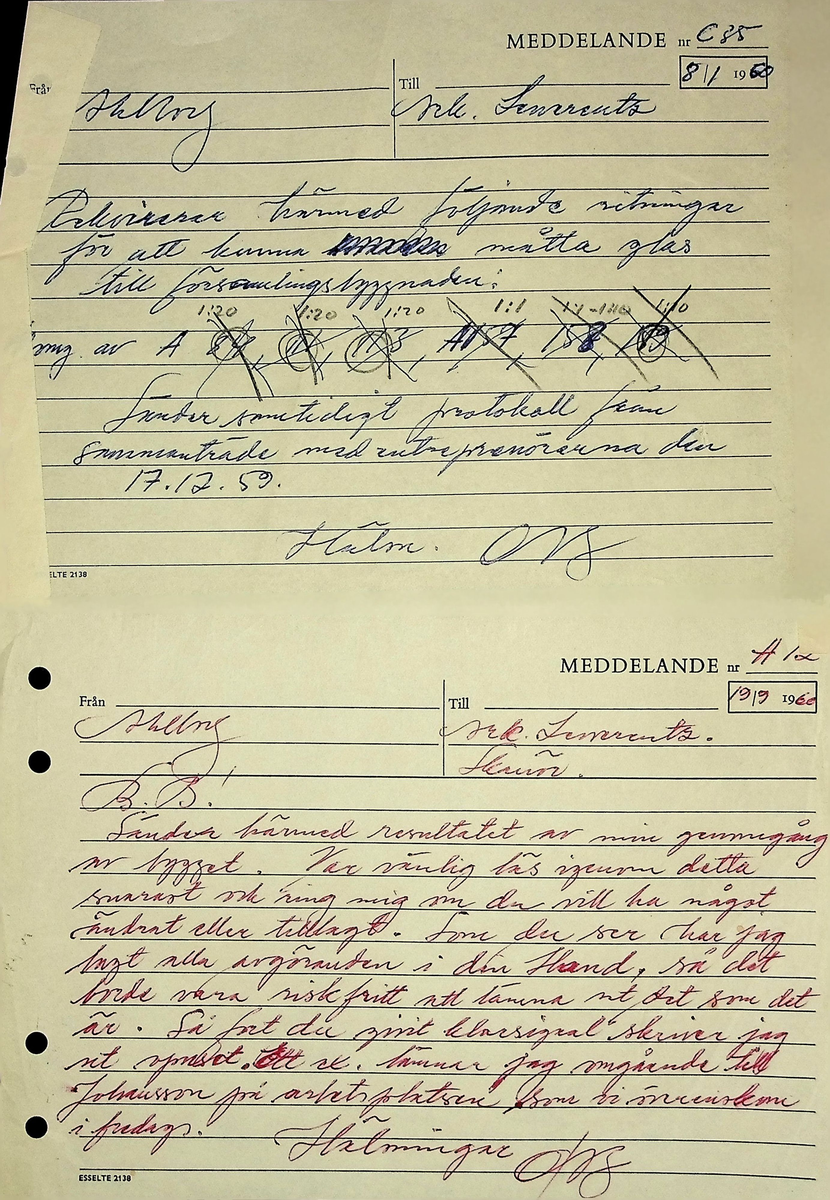 MEDDELANDE nr C 85
8/1 1960
Från
Till
Ahlborg
Ark. Lewerentz
Rekvirerar härmed följande ritningar
för att kunna måtta glas
till församlingsbyggnaden:
1:20 1:20 1:20 1:1 1:1-1:10 1:10
av A 113, A157, 158
Sänder samtidigt protokoll från
sammanträde med entreprenörerna den
17.12.59.
Hälsn.
ESSELTE 2138
MEDDELANDE nr A 12
19/9 1960
Från
Till
Ahlborg
Ark. Lewerentz.
Skanör.
B. B!
Sänder härmed resultatet av min genomgång
av bygget. Var vänlig läs igenom detta
snarast och ring mig om du vill ha något
ändrat eller tillagt. Som du ser har jag
lagt alla avgöranden i din hand, så det
borde vara riskfritt att lämna ut det som det
är. Så fort du givit "klarsignal" skriver jag
ut opuset. Ett ex. lämnar jag omgående till
Johansson på arbetsplatsen som vi överenskom
i fredags.
Hälsningar
ESSELTE 2138